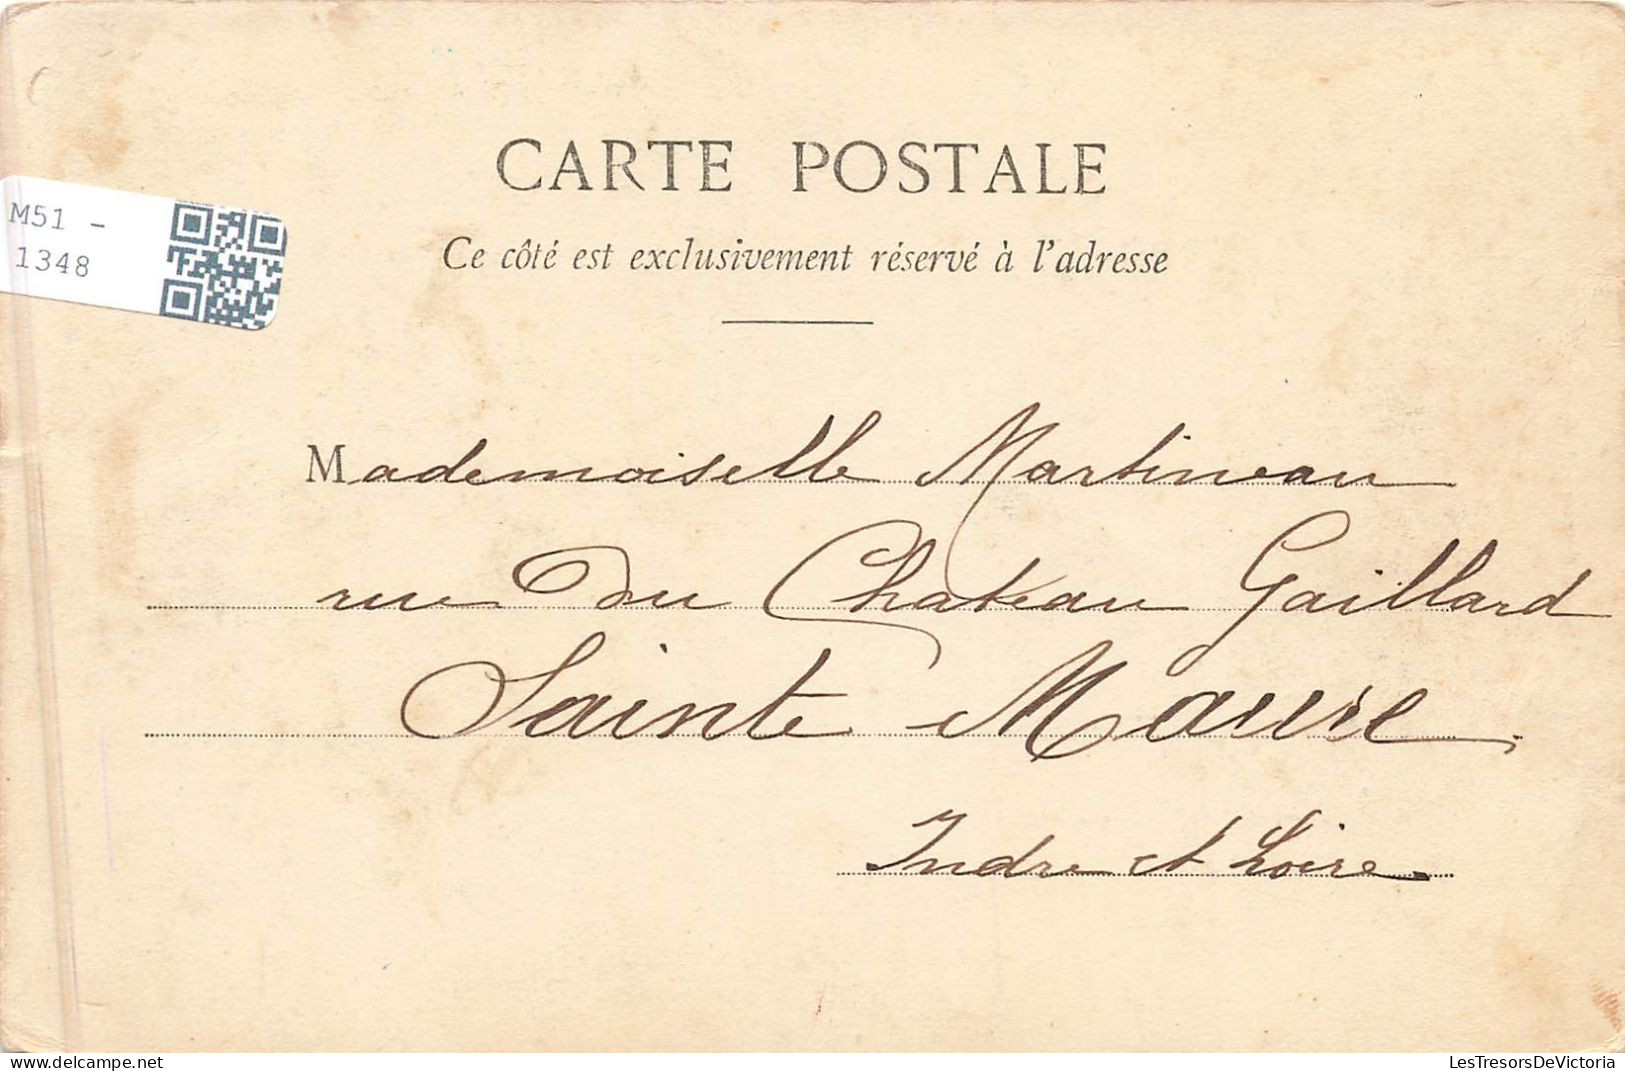 CARTE POSTALE
Ce côté est exclusivement réservé à l'adresse
M51 -
1348
Mademoiselle Martineau
rue Du Chateau Gaillard
Sainte Maure
Indre et Loire
delcampe.net
LesTresorsDeVictoria